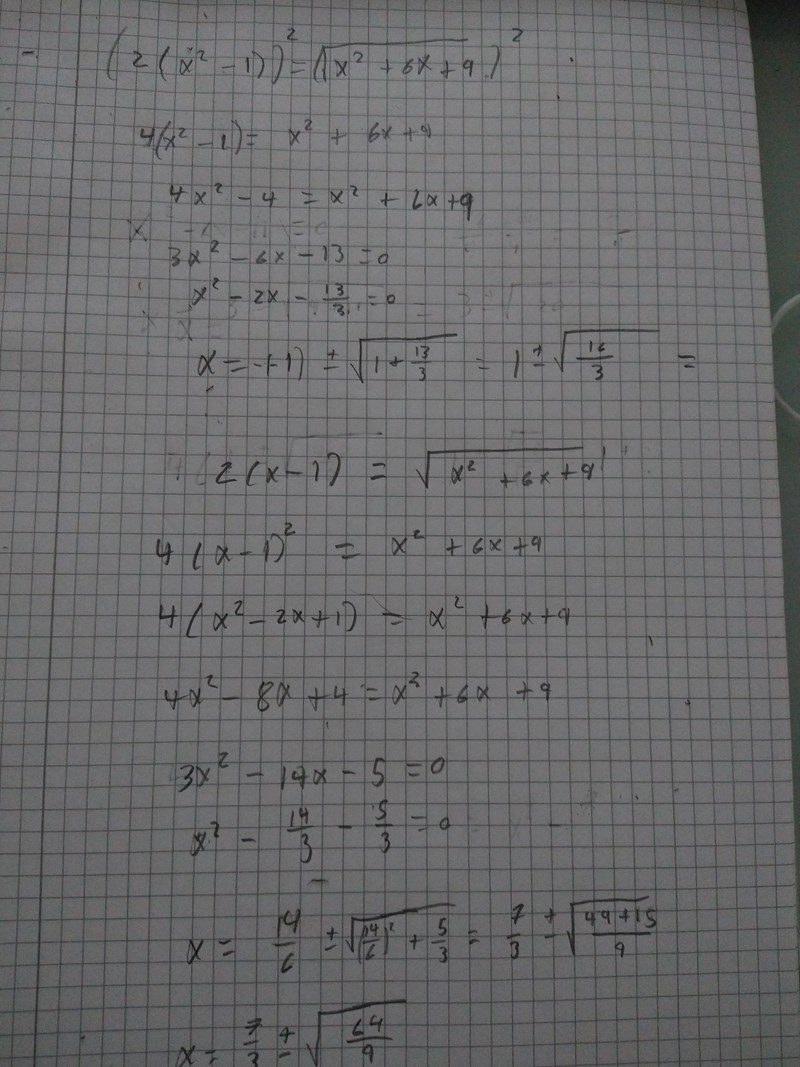 (2(x² - 1))² = (√(x² + 6x + 9))²
4(x² - 1) = x² + 6x + 9
4x² - 4 = x² + 6x + 9
3x² - 6x - 13 = 0
x² - 2x - 13/3 = 0
x = -(-1) ± √(1 + 13/3) = 1 ± √(16/3) =
2(x - 1) = √(x² + 6x + 9)
4(x - 1)² = x² + 6x + 9
4(x² - 2x + 1) = x² + 6x + 9
4x² - 8x + 4 = x² + 6x + 9
3x² - 14x - 5 = 0
x² - 14/3 - 5/3 = 0
x = 14/6 ± √((14/6)² + 5/3) = 7/3 ± √((49 + 15)/9)
x = 7/3 ± √(64/9)